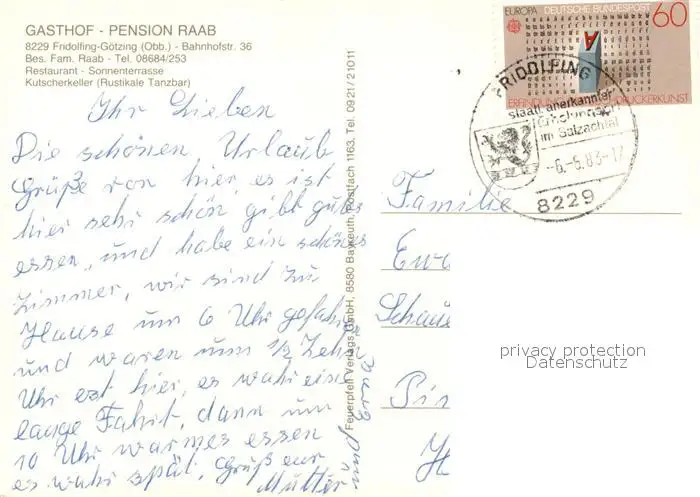 GASTHOF - PENSION RAAB
8229 Fridolfing-Götzing (Obb.) - Bahnhofstr. 36
Bes. Fam. Raab - Tel. 08684/253
Restaurant - Sonnenterrasse
Kutscherkeller (Rustikale Tanzbar)
Ihr Lieben
Die schönen Urlaub
Grüße von hier, es ist
hier sehr schön, gibt gutes
essen, und habe ein schönes
Zimmer, wir sind zu
Hause um 6 Uhr gefahren
und waren um 1/2 Zehn
Uhr erst hier, es wahr eine
lange Fahrt, dann um
10 Uhr warmes essen
es wahr spät, Grüß eur
Mutter und
Erna
Feuerpfeil Verlags GmbH, 8580 Bayreuth, Postfach 1163, Tel. 0921/21011
EUROPA DEUTSCHE BUNDESPOST 60
FRIDOLFING
staatl. anerkannter
Erholungsort
im Salzachtal
-6.-6.83-17
8229
Familie
privacy protection
Datenschutz